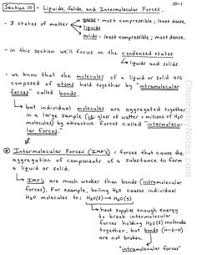 10-1
Section 10: Liquids, Solids, and Intermolecular Forces
- 3 states of matter
gases - most compressible; least dense
liquids
solids - least compressible; most dense.
- in this section we'll focus on the condensed states
liquids and solids
- we know that the molecules of a liquid or solid are
composed of atoms bonded together by "intramolecular
forces" called bonds.
but individual molecules are aggregated together
in a large sample (ie glass of water = millions of H₂O
molecules) by attractive forces called "intermolecu-
lar forces"
Intermolecular Forces (IMF's): forces that cause the
aggregation of components of a substance to form
a liquid or solid.
IMF's are much weaker than bonds (intramolecular
forces). For example, boiling causes individual
H₂O molecules to: H₂O(l) → H₂O(g)
heat supplies enough energy
to break intermolecular
forces holding H₂O molecules
together, but bonds (H-O-H)
are not broken.
"intramolecular forces"